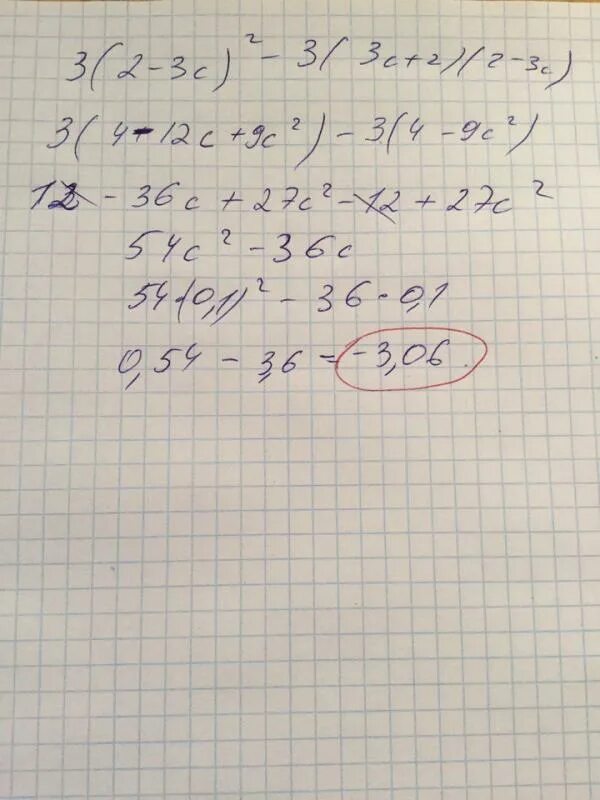 3(2-3c)² - 3(3c+2)(2-3c)
3(4-12c+9c²) - 3(4-9c²)
12 - 36c + 27c² - 12 + 27c²
54c² - 36c
54·(0,1)² - 36·0,1
0,54 - 3,6 = -3,06.